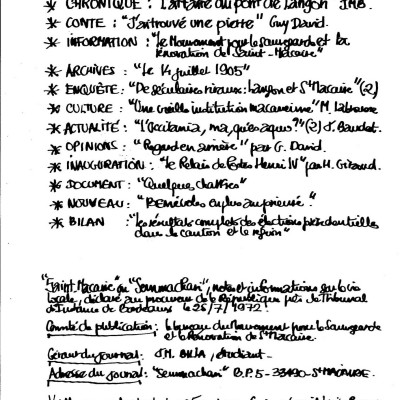 * CHRONIQUE : "L'affaire du pont de Langon" J.M.B.
* CONTE : "J'ai trouvé une pierre" Guy David.
* INFORMATION : "le Mouvement pour la Sauvegarde et la
Rénovation de Saint-Macaire."
* ARCHIVES : "Le 14 juillet 1905"
* ENQUÊTE : "De séculaires rivaux : Langon et St Macaire" (2)
* CULTURE : "Une vieille institution macarienne" M.
* ACTUALITÉ : "L'Occitania, ma, qu'es aquo ?" (2) J.
* OPINIONS : "Regard en arrière" par G. David.
* INAUGURATION : "le Relais de Poste Henri IV" par H. Giraud.
* DOCUMENT : "Quelques chiffres"
* NOUVEAU :
* BILAN : "les résultats complets des élections présidentielles
dans le canton et la région"
"Saint-Macaire" ou "Semmachari", notes et informations sur la vie
locale, déclaré au procureur de la République près le Tribunal
d'Instance de Bordeaux le 26/7/1972.
Comité de publication : le bureau du Mouvement pour la Sauvegarde
et la Rénovation de St Macaire.
Gérant du journal : J.M. BILLA, étudiant -
Adresse du journal : "Semmachari" B.P. 5 - 33490 - St MACAIRE.